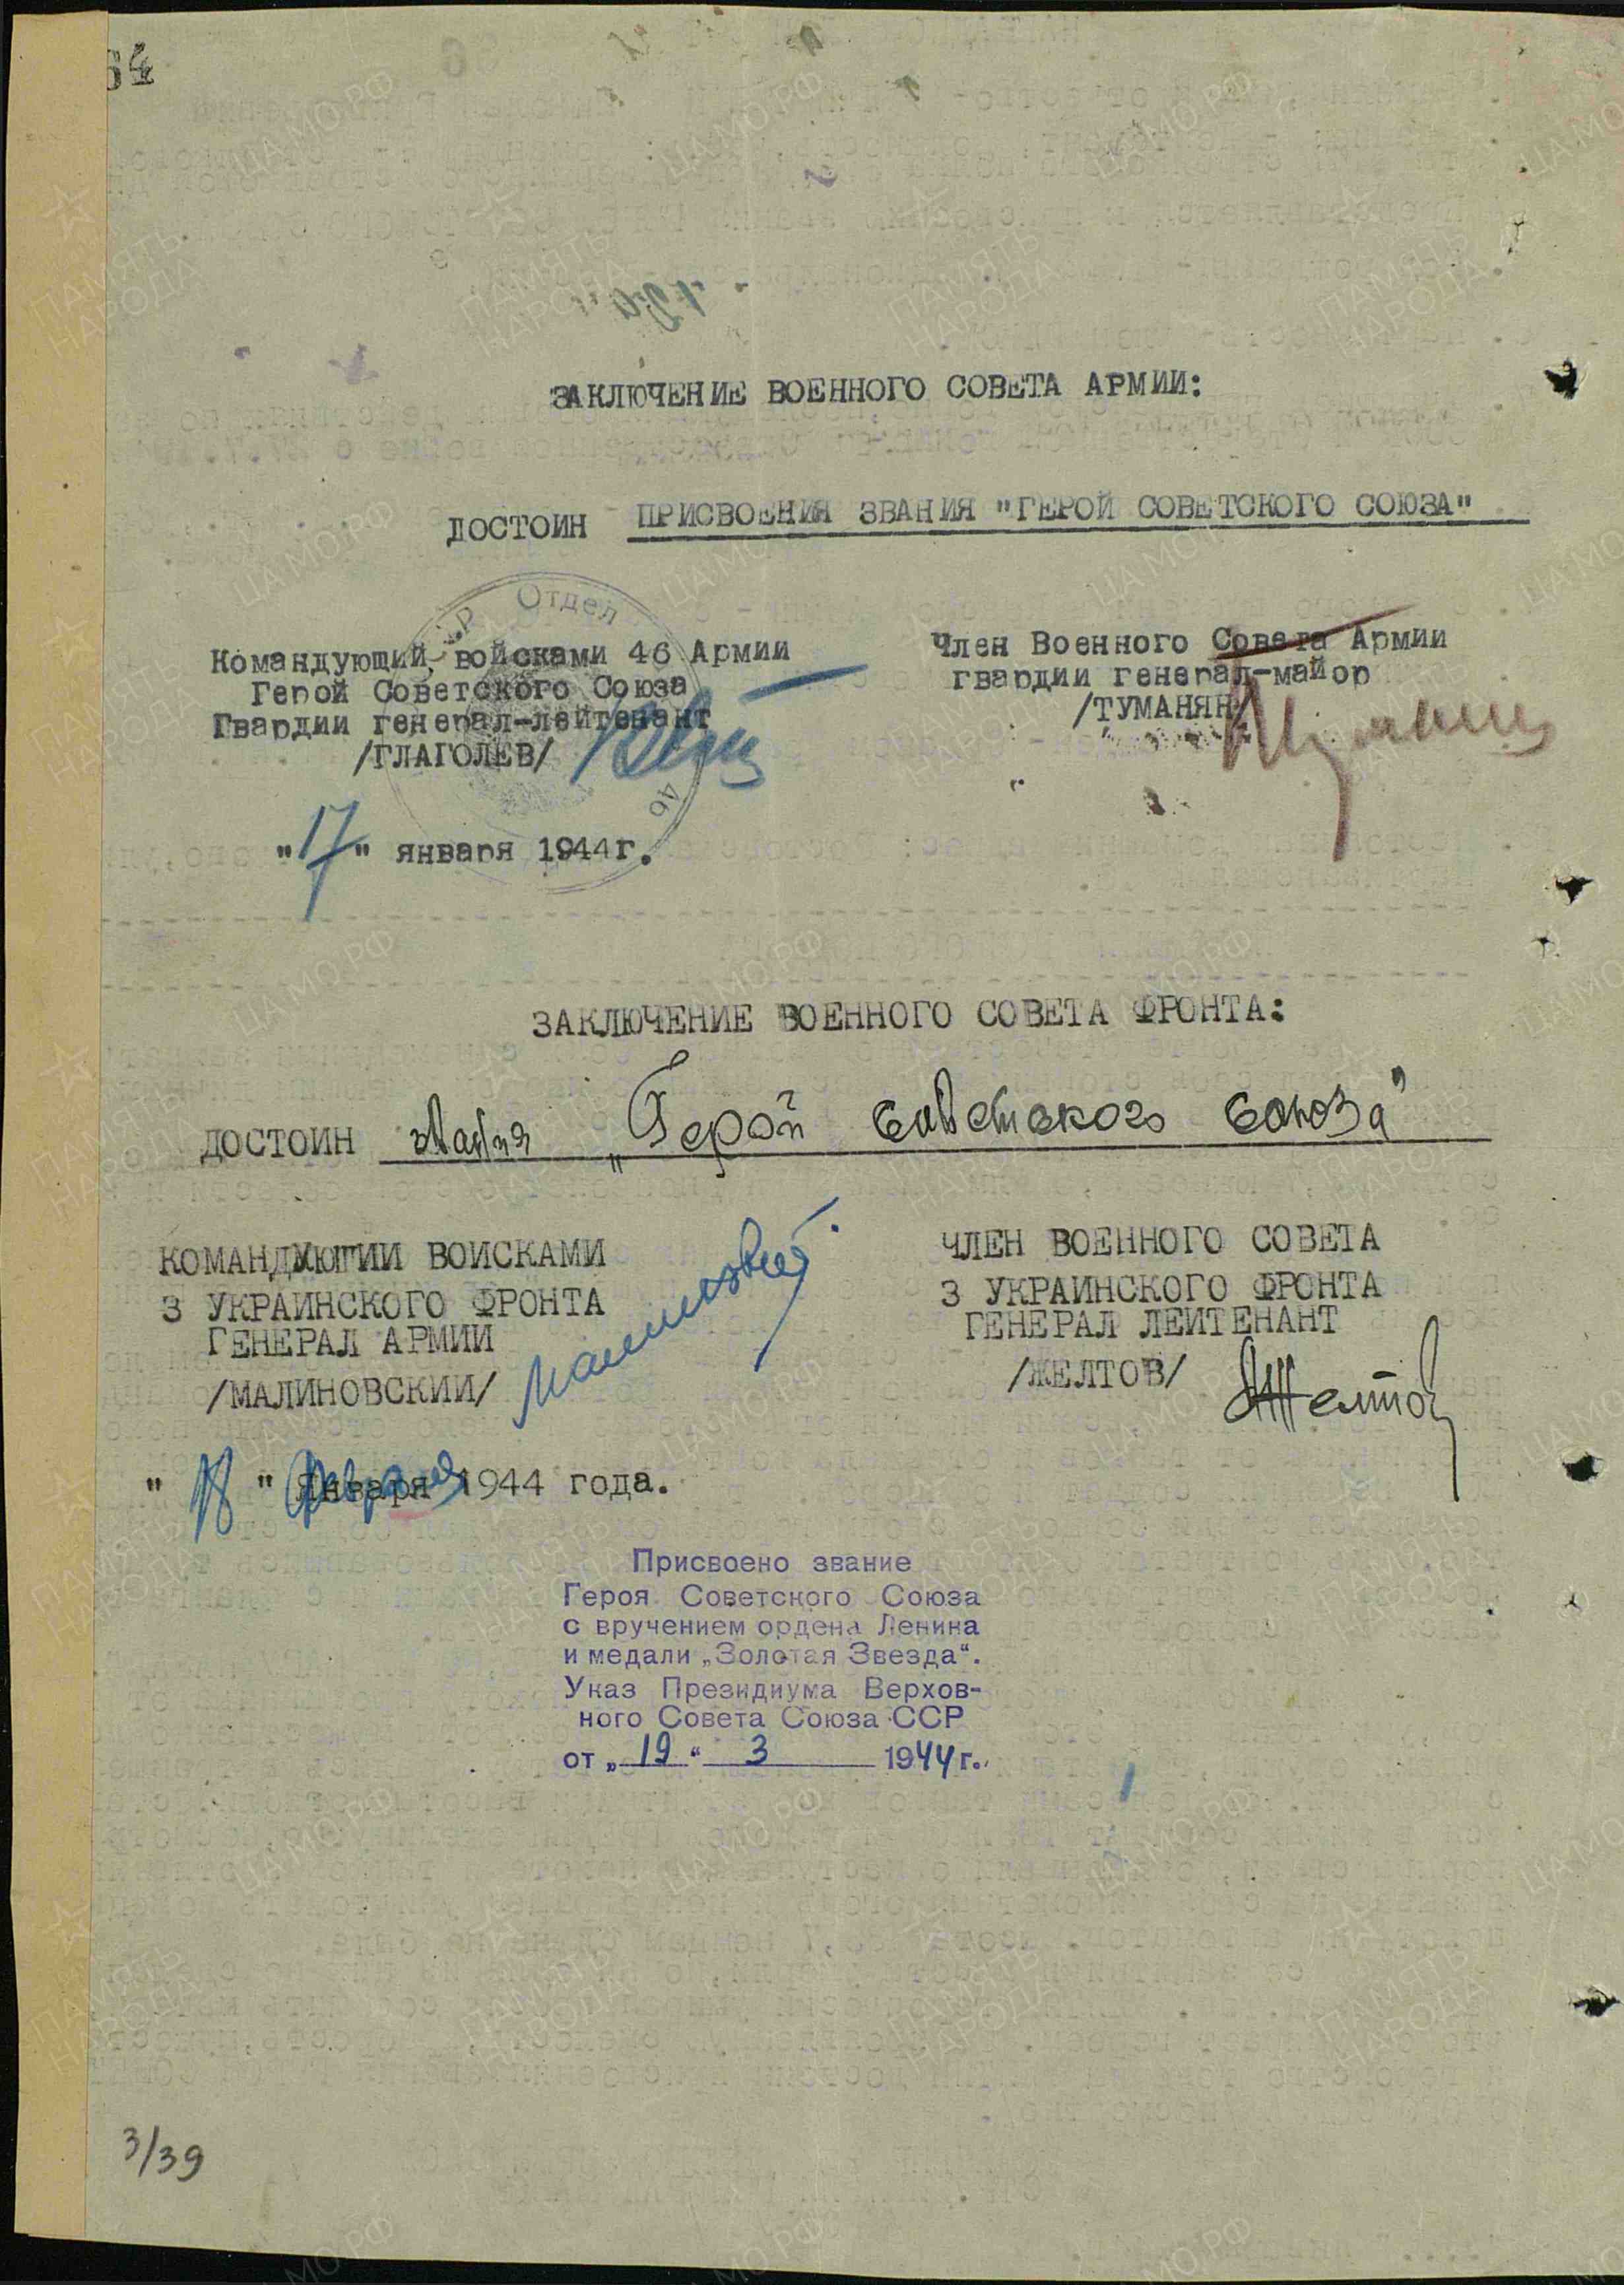 64
ЗАКЛЮЧЕНИЕ ВОЕННОГО СОВЕТА АРМИИ:
ДОСТОИН ПРИСВОЕНИЯ ЗВАНИЯ "ГЕРОЙ СОВЕТСКОГО СОЮЗА"
Командующий войсками 46 Армии
Герой Советского Союза
Гвардии генерал-лейтенант
/ГЛАГОЛЕВ/
Отдел
Член Военного Совета Армии
гвардии генерал-майор
/ТУМАНЯН/
"17" января 1944г.
ЗАКЛЮЧЕНИЕ ВОЕННОГО СОВЕТА ФРОНТА:
ДОСТОИН звания „Герой Советского Союза"
КОМАНДУЮЩИЙ ВОЙСКАМИ
3 УКРАИНСКОГО ФРОНТА
ГЕНЕРАЛ АРМИИ
/МАЛИНОВСКИЙ/ Малиновский
ЧЛЕН ВОЕННОГО СОВЕТА
3 УКРАИНСКОГО ФРОНТА
ГЕНЕРАЛ ЛЕЙТЕНАНТ
/ЖЕЛТОВ/ Желтов
" " Февраля 1944 года.
Присвоено звание
Героя Советского Союза
с вручением ордена Ленина
и медали „Золотая Звезда“.
Указ Президиума Верхов-
ного Совета Союза ССР
от „19“ 3 1944г.
3/39
ПАМЯТЬ НАРОДА
ЦА МО.РФ